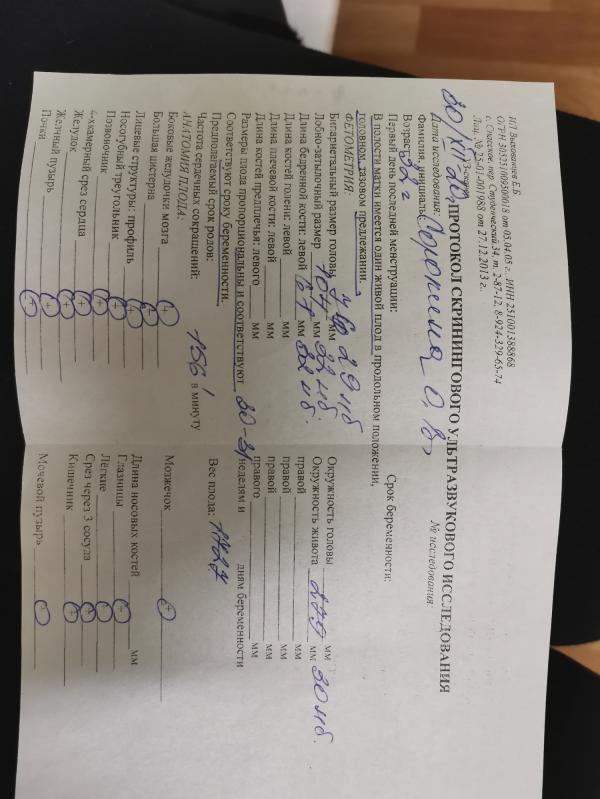 ИП Высованцев Е.В.
ОГРН 305251009500018 от 05.04.05 г., ИНН 251001388868
г. Спасск, пер. Студенческий 34, т. 2-87-12, 8-924-329-65-74
Лиц. № 25-01-001988 от 17.12.2013 г.
ПРОТОКОЛ СКРИНИНГОВОГО УЛЬТРАЗВУКОВОГО ИССЛЕДОВАНИЯ
Дата исследования: № исследования:
30/XII
Фамилия, инициалы О, В,
Возраст: 32 г
Первый день последней менструации: Срок беременности:
В полости матки имеется один живой плод в продольном положении,
головном, тазовом предлежании.
ФЕТОМЕТРИЯ:
Бипариетальный размер головы мм 29 нб Окружность головы мм
Лобно-затылочный размер мм 32 нб. Окружность живота 279 мм 30 нб.
Длина бедренной кости: левой мм 32 нб. правой мм
Длина костей голени: левой мм правой мм
Длина плечевой кости: левой мм правой мм
Длина костей предплечья: левого мм правого мм
Размеры плода пропорциональны и соответствуют 30-31 неделям и дням беременности
Соответствуют сроку беременности.
Предполагаемый срок родов: Вес плода: 1727
Частота сердечных сокращений: 156 ' в минуту
АНАТОМИЯ ПЛОДА:
Боковые желудочки мозга + Мозжечок +
Большая цистерна +
Лицевые структуры: профиль + Длина носовых костей мм
Носогубный треугольник + Глазницы +
Позвоночник + Лёгкие +
4-хкамерный срез сердца + Срез через 3 сосуда +
Желудок + Кишечник +
Желчный пузырь + Мочевой пузырь +
Почки +